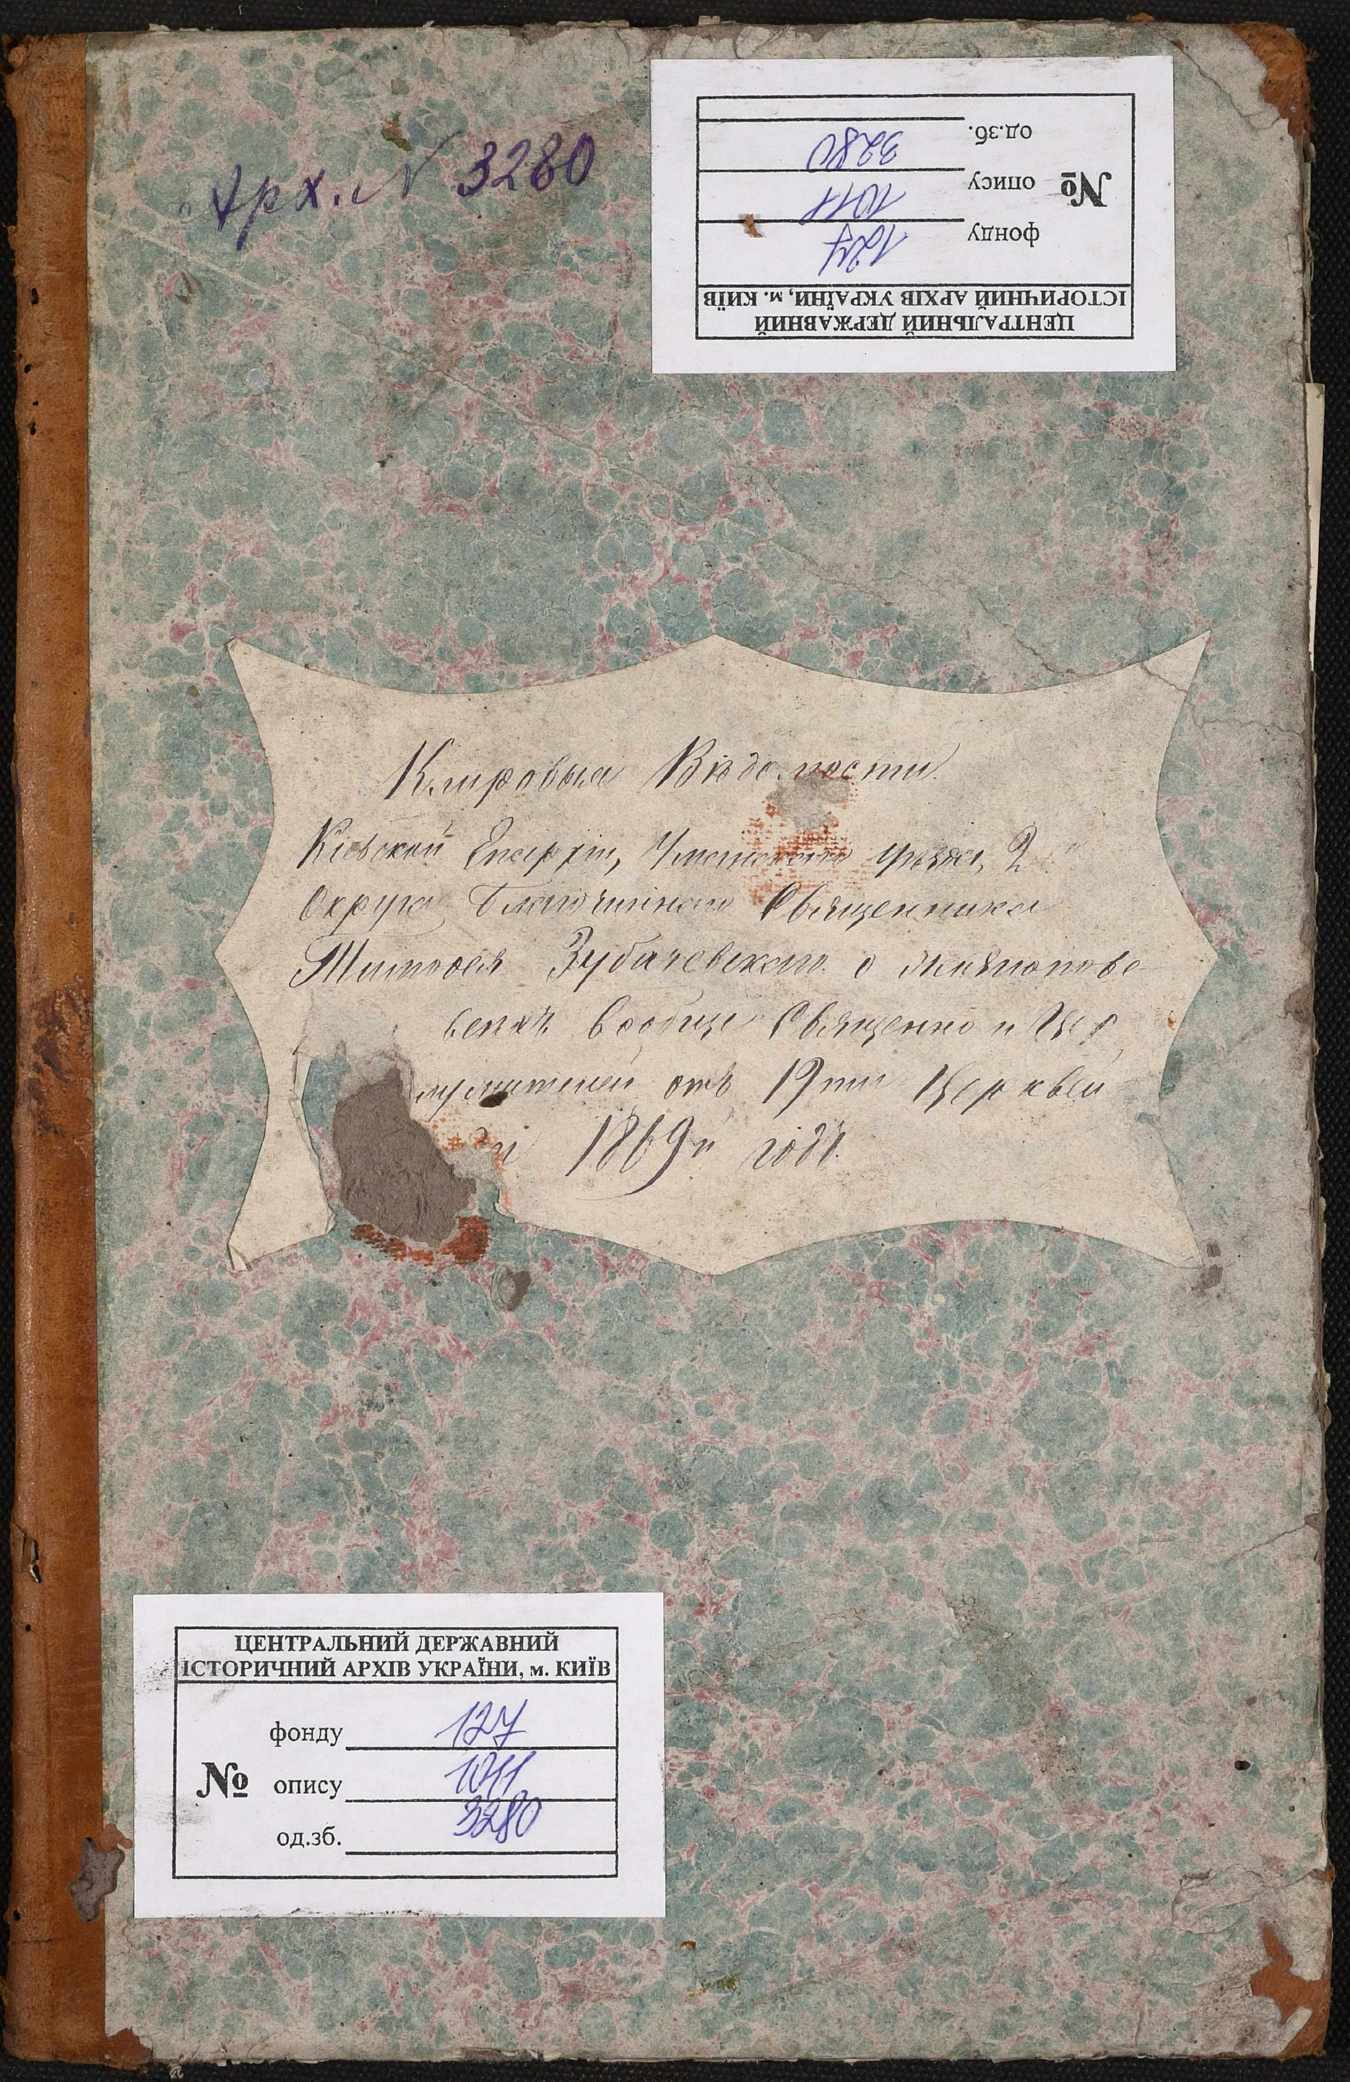 Арх. N 3280
ЦЕНТРАЛЬНИЙ ДЕРЖАВНИЙ
ІСТОРИЧНИЙ АРХІВ УКРАЇНИ, м. КИЇВ
фонду 127
№ опису 1011
од.зб. 3280
Клировыя Вѣдомости
Кіевской Епархіи, Уманскаго уѣзда, 2
Округа Благочиннаго Священника
Тимофея Зубачевскаго о
вообще Священно и Цер
служителей отъ 19ти Церквей
1869й годъ.
ЦЕНТРАЛЬНИЙ ДЕРЖАВНИЙ
ІСТОРИЧНИЙ АРХІВ УКРАЇНИ, м. КИЇВ
фонду 127
№ опису 1011
од.зб. 3280